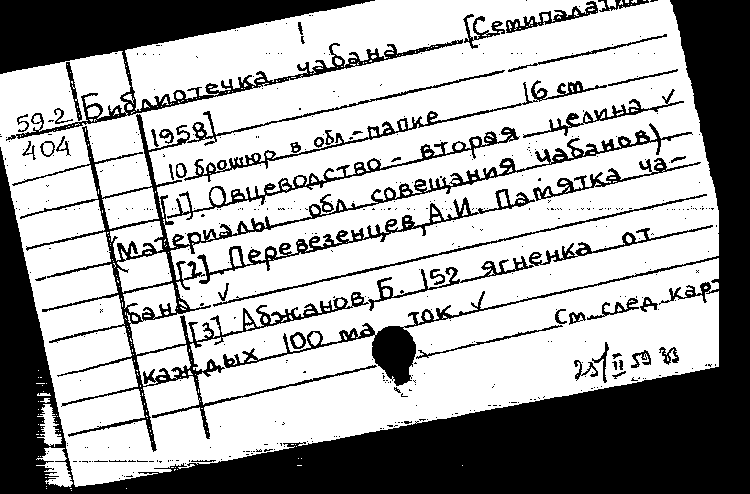 1
59-2 Библиотечка чабана [Семипалатинс
404 1958]
10 брошюр в обл.-папке 16 cm
[1]. Овцеводство - вторая целина. ✓
(Материалы обл. совещания чабанов).
[2]. Перевезенцев, А.И. Памятка ча-
бана. ✓
[3]. Абжанов, Б. 152 ягненка от
каждых 100 маток. ✓
См. след. карт
25/II 59